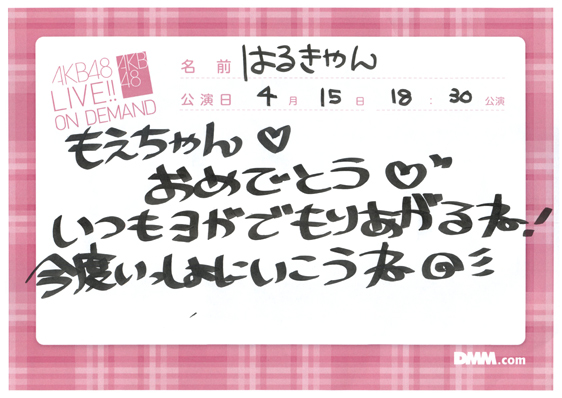 AKB48
LIVE!!
ON DEMAND
AKB
48
名前 はるきゃん
公演日 4月 15日 18:30 公演
もえちゃん♡
おめでとう♡"
いつもヨガでもりあがるネ!
今度いっしょにいこうネ
DMM.com